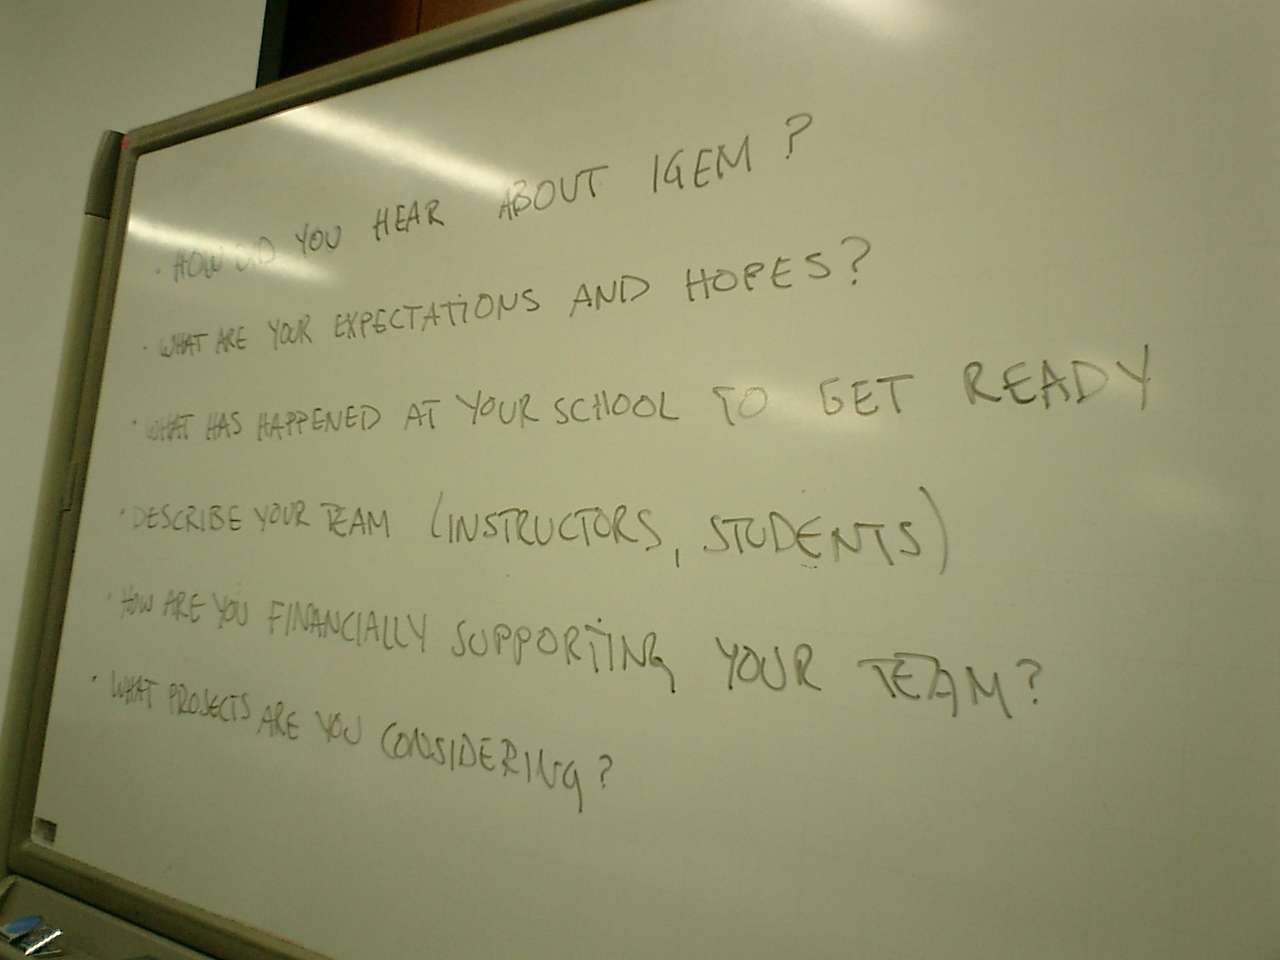 · HOW DID YOU HEAR ABOUT IGEM?
· WHAT ARE YOUR EXPECTATIONS AND HOPES?
· WHAT HAS HAPPENED AT YOUR SCHOOL TO GET READY
· DESCRIBE YOUR TEAM (INSTRUCTORS, STUDENTS)
· HOW ARE YOU FINANCIALLY SUPPORTING YOUR TEAM?
· WHAT PROJECTS ARE YOU CONSIDERING?